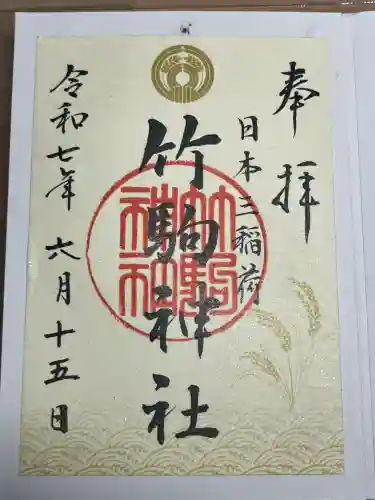 奉拝
日本三稲荷
竹駒神社
竹駒神社
令和七年六月十五日